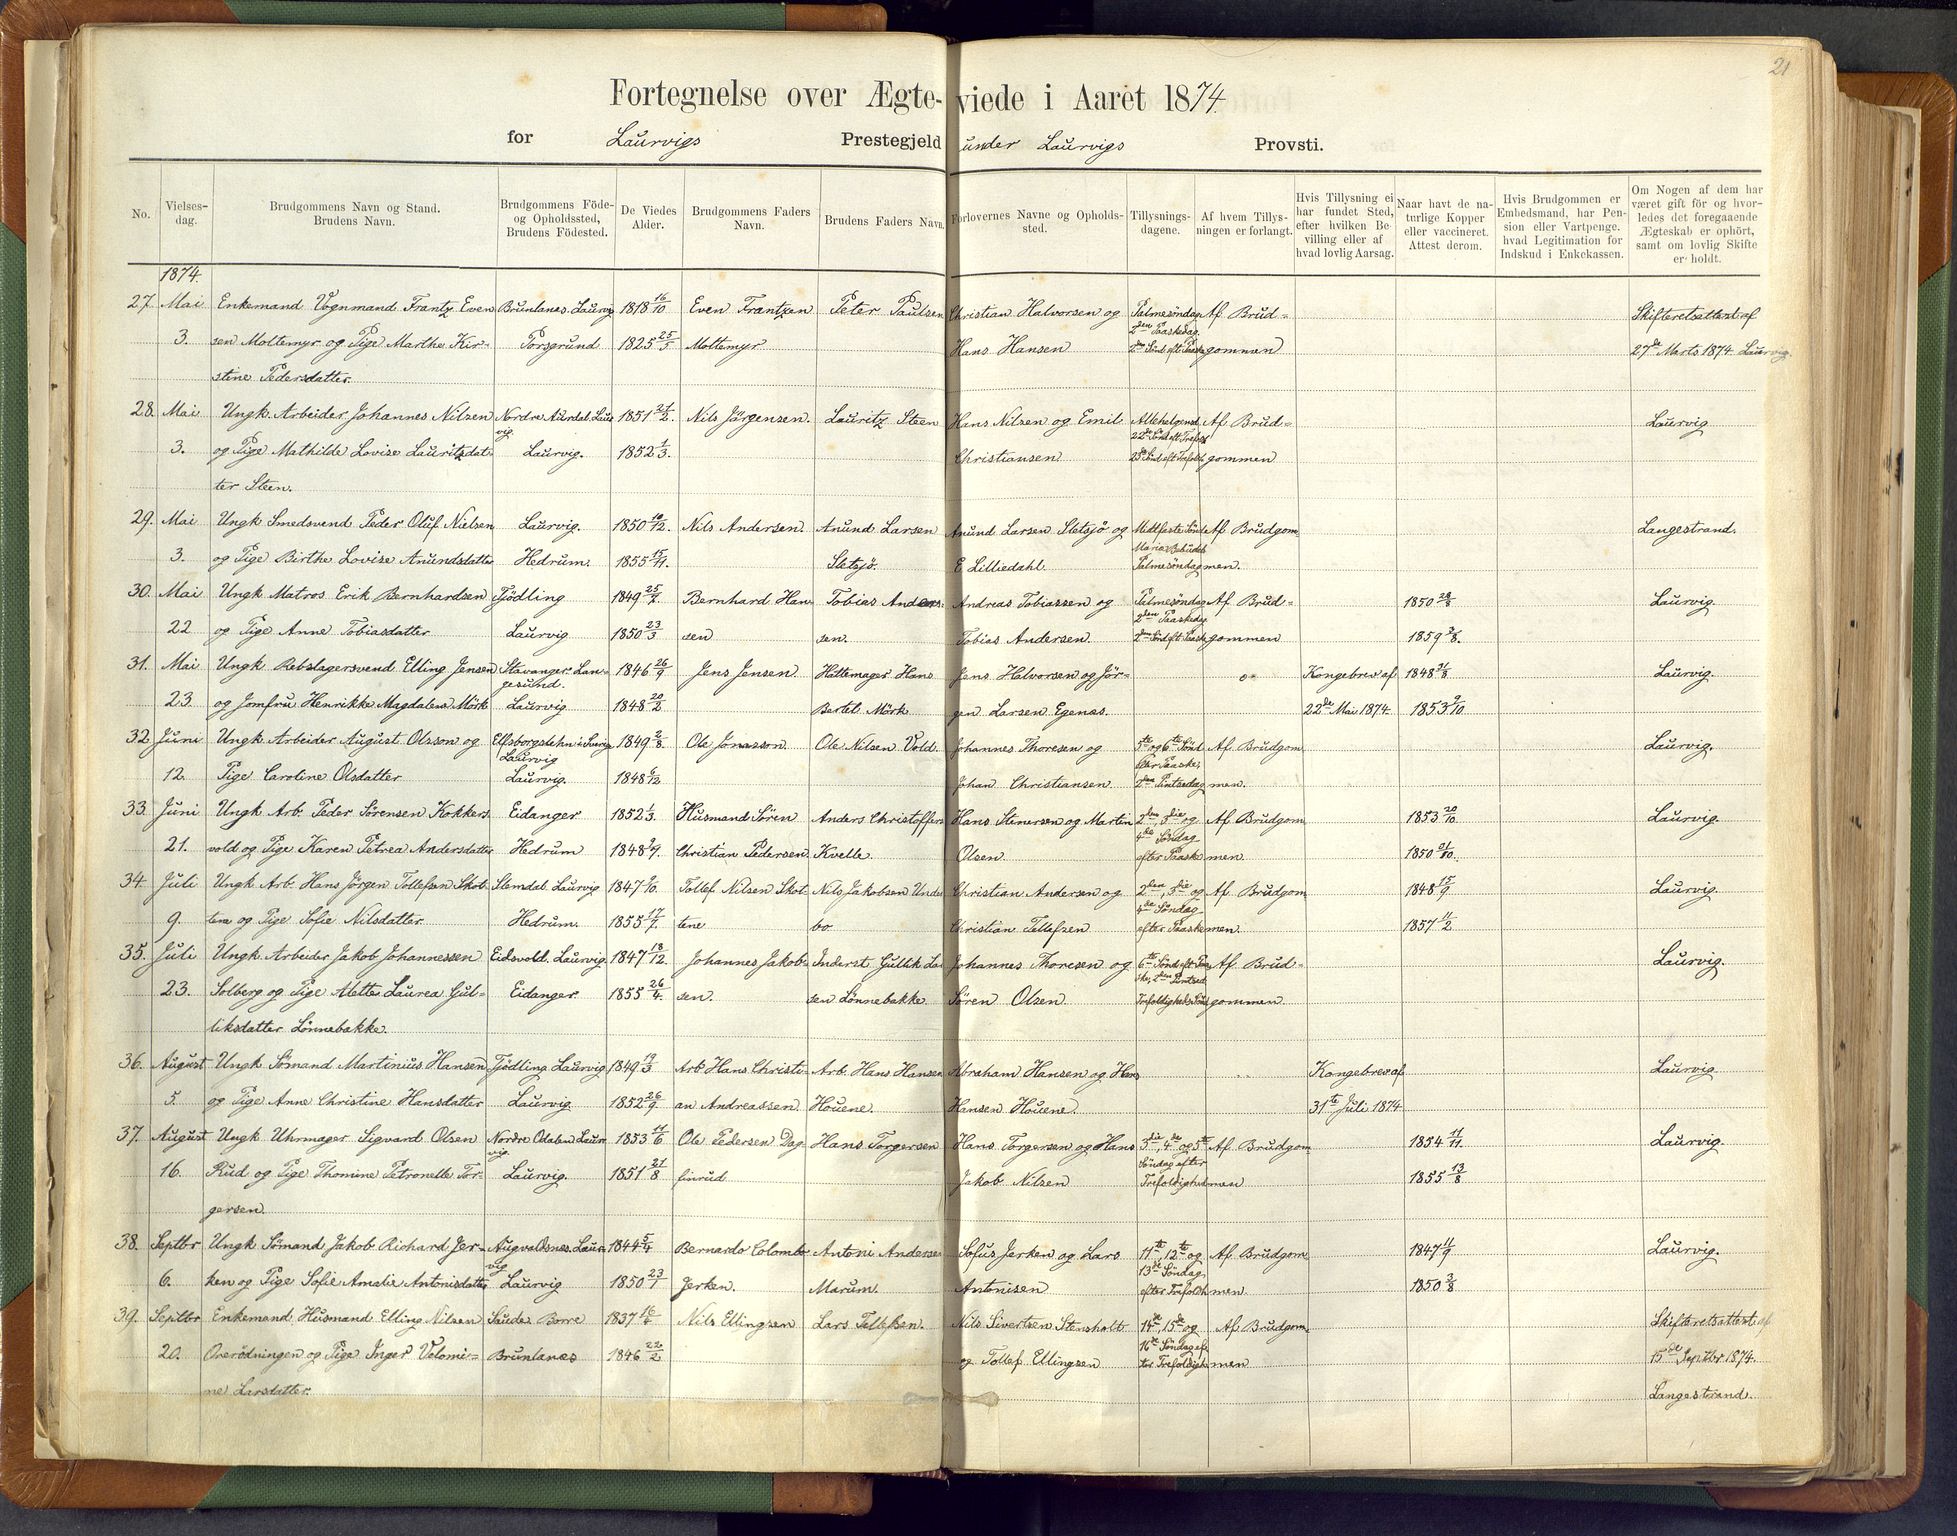 21
Fortegnelse over Ægteviede i Aaret 1874.
for Laurvigs Prestegjeld under Laurvigs Provsti.
No. | Vielsesdag. | Brudgommens Navn og Stand. Brudens Navn. | Brudgommens Føde- og Opholdssted, Brudens Fødested. | De Viedes Alder. | Brudgommens Faders Navn. | Brudens Faders Navn. | Forlovernes Navne og Opholdssted. | Tillysningsdagene. | Af hvem Tillysningen er forlangt. | Hvis Tillysning ei har fundet Sted, efter hvilken Bevilling eller af hvad lovlig Aarsag. | Naar havt de naturlige Kopper eller vaccineret. Attest derom. | Hvis Brudgommen er Embedsmand, har Pension eller Vartpenge, hvad Legitimation for Indskud i Enkekassen. | Om Nogen af dem har været gift før og hvorledes det foregaaende Ægteskab er ophørt, samt om lovlig Skifte er holdt.
1874.
27. Mai Enkemand Vognmand Frantz Even Brunlanes. Laurvig 1818 16/10 Even Frantzen Peter Paulsen Christian Halvorsen og Palmesöndag Af Brud= Skifteretsattest af
3. sen Moltemyr og Pige Marthe Kir= Porsgrund 1825 25/5 Moltemyr Hans Hansen 2den Paaskedag 2den Sönd. eft. Paaske gommen 27de Marts 1874. Laurvig.
stine Pedersdatter.
28. Mai Ungk. Arbeider Johannes Nilsen Nordre Aurdal. Laur 1851 21/2. Nils Jörgensen. Lauritz Steen Hans Nilsen og Emil Allehelgensd Af Brud= Laurvig
3. og Pige Mathilde Lovise Lauritzdat vig. Laurvig. 1852 1/3. Christiansen 22de Sönd eft Trefol 23de Sönd eft Trefold gommen
ter Steen.
29. Mai Ungk Smedsvend Peder Oluf Nielsen Laurvig. 1850 10/12. Nils Andersen. Anund Larsen Anund Larsen Sletsjö og Midtfaste Sönd Af Brudgom Langestrand.
3. og Pige Birthe Lovise Anundsdatter Hedrum. 1855 15/11. Sletsjö. E Lilliedahl. Maria Bebudels Palmesöndag men.
30. Mai Ungk Matros Erik Bernhardsen Tjödling 1849 25/7. Bernhard Han Tobias Anders Andreas Tobiassen og Palmesöndag Af Brud= 1850 28/8 Laurvig.
22 og Pige Anne Tobiasdatter Laurvig 1850 23/3 sen sen. Tobias Andersen. 2den Paaskedag 2den Sönd eft. Paaske gommen 1859 2/8.
31. Mai Ungk. Rebslagersvend Elling Jensen Stavanger. Lan= 1846 26/9 Jens Jensen. Hattemager Hans Jens Halvorsen og Jör= Kongebrev af 1848 31/8 Laurvig.
23. og Jomfru Henrikke Magdalene Mörk gesund. Laurvig 1848 20/2 Bertel Mörk gen Larsen Egenæs. 22de Mai 1874. 1853 9/10.
32 Juni Ungk Arbeider August Olsson og Elfsborgslehn i Sverig 1849 2/8 Ole Jonasson. Ole Nilsen Vold. Johannes Thoresen og 5te og 6te Sönd Af Brudgom Laurvig.
12. Pige Caroline Olsdatter Laurvig Laurvig. 1848 6/12 Johan Christiansen efter Paaske, 2den Pintsedag men.
33. Juni Ungk Arb. Peder Sörensen Kokkers Eidanger 1852 1/3. Husmand Sören Anders Christoffers Hans Stenersen og Martin 2den, 3die og Af Brudgom 1853 20/10 Laurvig.
21. vold og Pige Karen Petrea Andersdatter Hedrum 1848 2/9. Christian Pedersen Kvelle. Olsen. 4de Söndag efter Paaske men. 1850 21/10.
34. Juli Ungk Arb. Hans Jörgen Tollefsen Skot Slemdal. Laurvig 1847 9/10. Tollef Nilsen Skot Nils Jakobsen Under Christian Andersen og 2den, 3die og Af Brudgom 1848 15/9 Laurvig.
9. tene og Pige Sofie Nilsdatter. Hedrum. 1855 17/7 tene bo Christian Tellefsen 4de Söndag efter Paaske men. 1857 11/2
35. Juli Ungk Arbeider Jakob Johannessen Eidsvold. Laurvig. 1847 18/12 Johannes Jakob= Inderst Gullik La Johannes Thoresen og 6te Sönd eft Paa Af Brud= Laurvig.
23. Solberg og Pige Alette Laurea Gul= Eidanger. 1855 26/4. sen. sen Lönnebakke Sören Olsen. ske, 2den Pintsed Trefoldigheds Sönd gommen
liksdatter Lönnebakke.
36. August Ungk. Sömand Martinius Hansen Tjödling Laurvig 1849 19/3 Arb Hans Christi Arb. Hans Hansen Abraham Hansen og Hans Kongebrev af Laurvig
5. og Pige Anne Christine Hansdatter Laurvig 1852 26/9 an Andreassen Houene. Hansen Houene. 31te Juli 1874
37. August Ungk Uhrmager Sigvard Olsen Nordre Odalen Laur 1853 11/6 Ole Pedersen Dag Hans Torgersen Hans Torgersen og Hans 3die, 4de og 5te Af Brudgom 1854 11/11. Laurvig.
16. Rud og Pige Thomine Petronelle Tor= vig. Laurvig. 1851 21/8 finrud Jakob Nilsen Söndag efter Trefoldighed men 1855 13/8
gersen.
38. Septbr Ungk Sömand Jakob Richard Jer= Augvaldsnes. Laur 1844 5/4 Bernardo Colombo Antoni Anderse Sofus Jerken og Lars 11te, 12te og Af Brudgom 1847 11/9 Laurvig.
6. ken og Pige Sofie Amalie Antonisdatter vig Laurvig 1850 23/1 Jerken. Marum. Antonisen 13de Söndag efter Trefoldh men. 1850 3/8
39. Septbr Enkemand Husmand Elling Nilsen Saude. Borre 1837 16/4 Nils Ellingsen Lars Tellefsen. Nils Sivertsen Stensholt 14de, 15de og Af Brudgom= Skifteretsattest af
20. Orerödningen og Pige Inger Velomi= Brunlanæs 1846 22/2 og Tollef Ellingsen 16de Söndag ef ter Trefoldigh men 15de Septbr 1874.
ne Larsdatter. Langestrand.